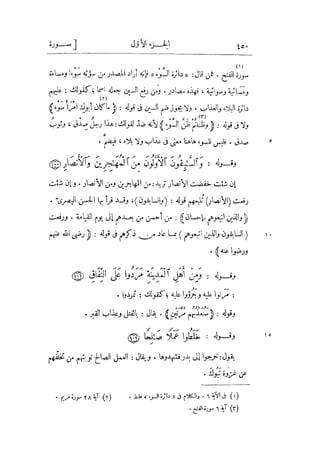 ٤٥٠ الجزء الأول [ ســورة
سورة الفتح . فمن قال : « دائرة السَّوء » فإنه أراد المصدر من سؤته سَوءا ومساءة
ومسائية وسوائية ، فهذه مصادر . ومن رفع السين جعله اسما ؛ كقولك : عليهم
دائرة البلاء والعذاب . ولا يجوز ضم السين فى قوله : ﴿ ما كان أبوك امرأ سَوء ﴾ (٢)
ولا فى قوله : ﴿ وظننتم ظنّ السَّوء ﴾ (٣) لأنه ضدّ لقولك : هذا رجل صدق ، وثوب
٥ صدق . فليس للسوء هاهنا معنى فى عذاب ولا بلاء ، فيضم .
وقوله : وَالسَّابِقُونَ الْأَوَّلُونَ مِنَ الْمُهَاجِرِينَ وَالْأَنْصَارِ (١٠٠)
إن شئت خفضت الأنصار تريد : من المهاجرين ومن الأنصار . وإن شئت
رفعت (الأنصار) تتبعهم قوله : (والسابقون) ، وقد قرأ بها الحسن البصرى .
﴿ والذين اتبعوهم بإحسان ﴾ : من أحسن من بعدهم إلى يوم القيامة . ورفعت
١٠ ( السابقون والذين اتبعوهم ) بما عاد من ذكرهم فى قوله : ﴿ رضى الله عنهم
ورضوا عنه ﴾ .
وقوله : وَمِنْ أَهْلِ الْمَدِينَةِ مَرَدُوا عَلَى النِّفَاقِ (١٠١)
: مرنوا عليه وجرؤوا عليه ؛ كقولك : تمردوا .
وقوله : ﴿ سنعذبهم مرّتين ﴾ . يقال : بالقتل وعذاب القبر .
١٥ وقوله : خَلَطُوا عَمَلًا صَالِحًا (١٠٢)
يقول : خرجوا إلى بدر فشهدوها . ويقال : العمل الصالح توبتهم من تخلّفهم
عن غزوة تبوك .
(١) فى الآية ٦ . والكلام فى « دائرة السوء » فقط . (٢) آية ٢٨ سورة مريم .
(٣) آية ٦ سورة الفتح .